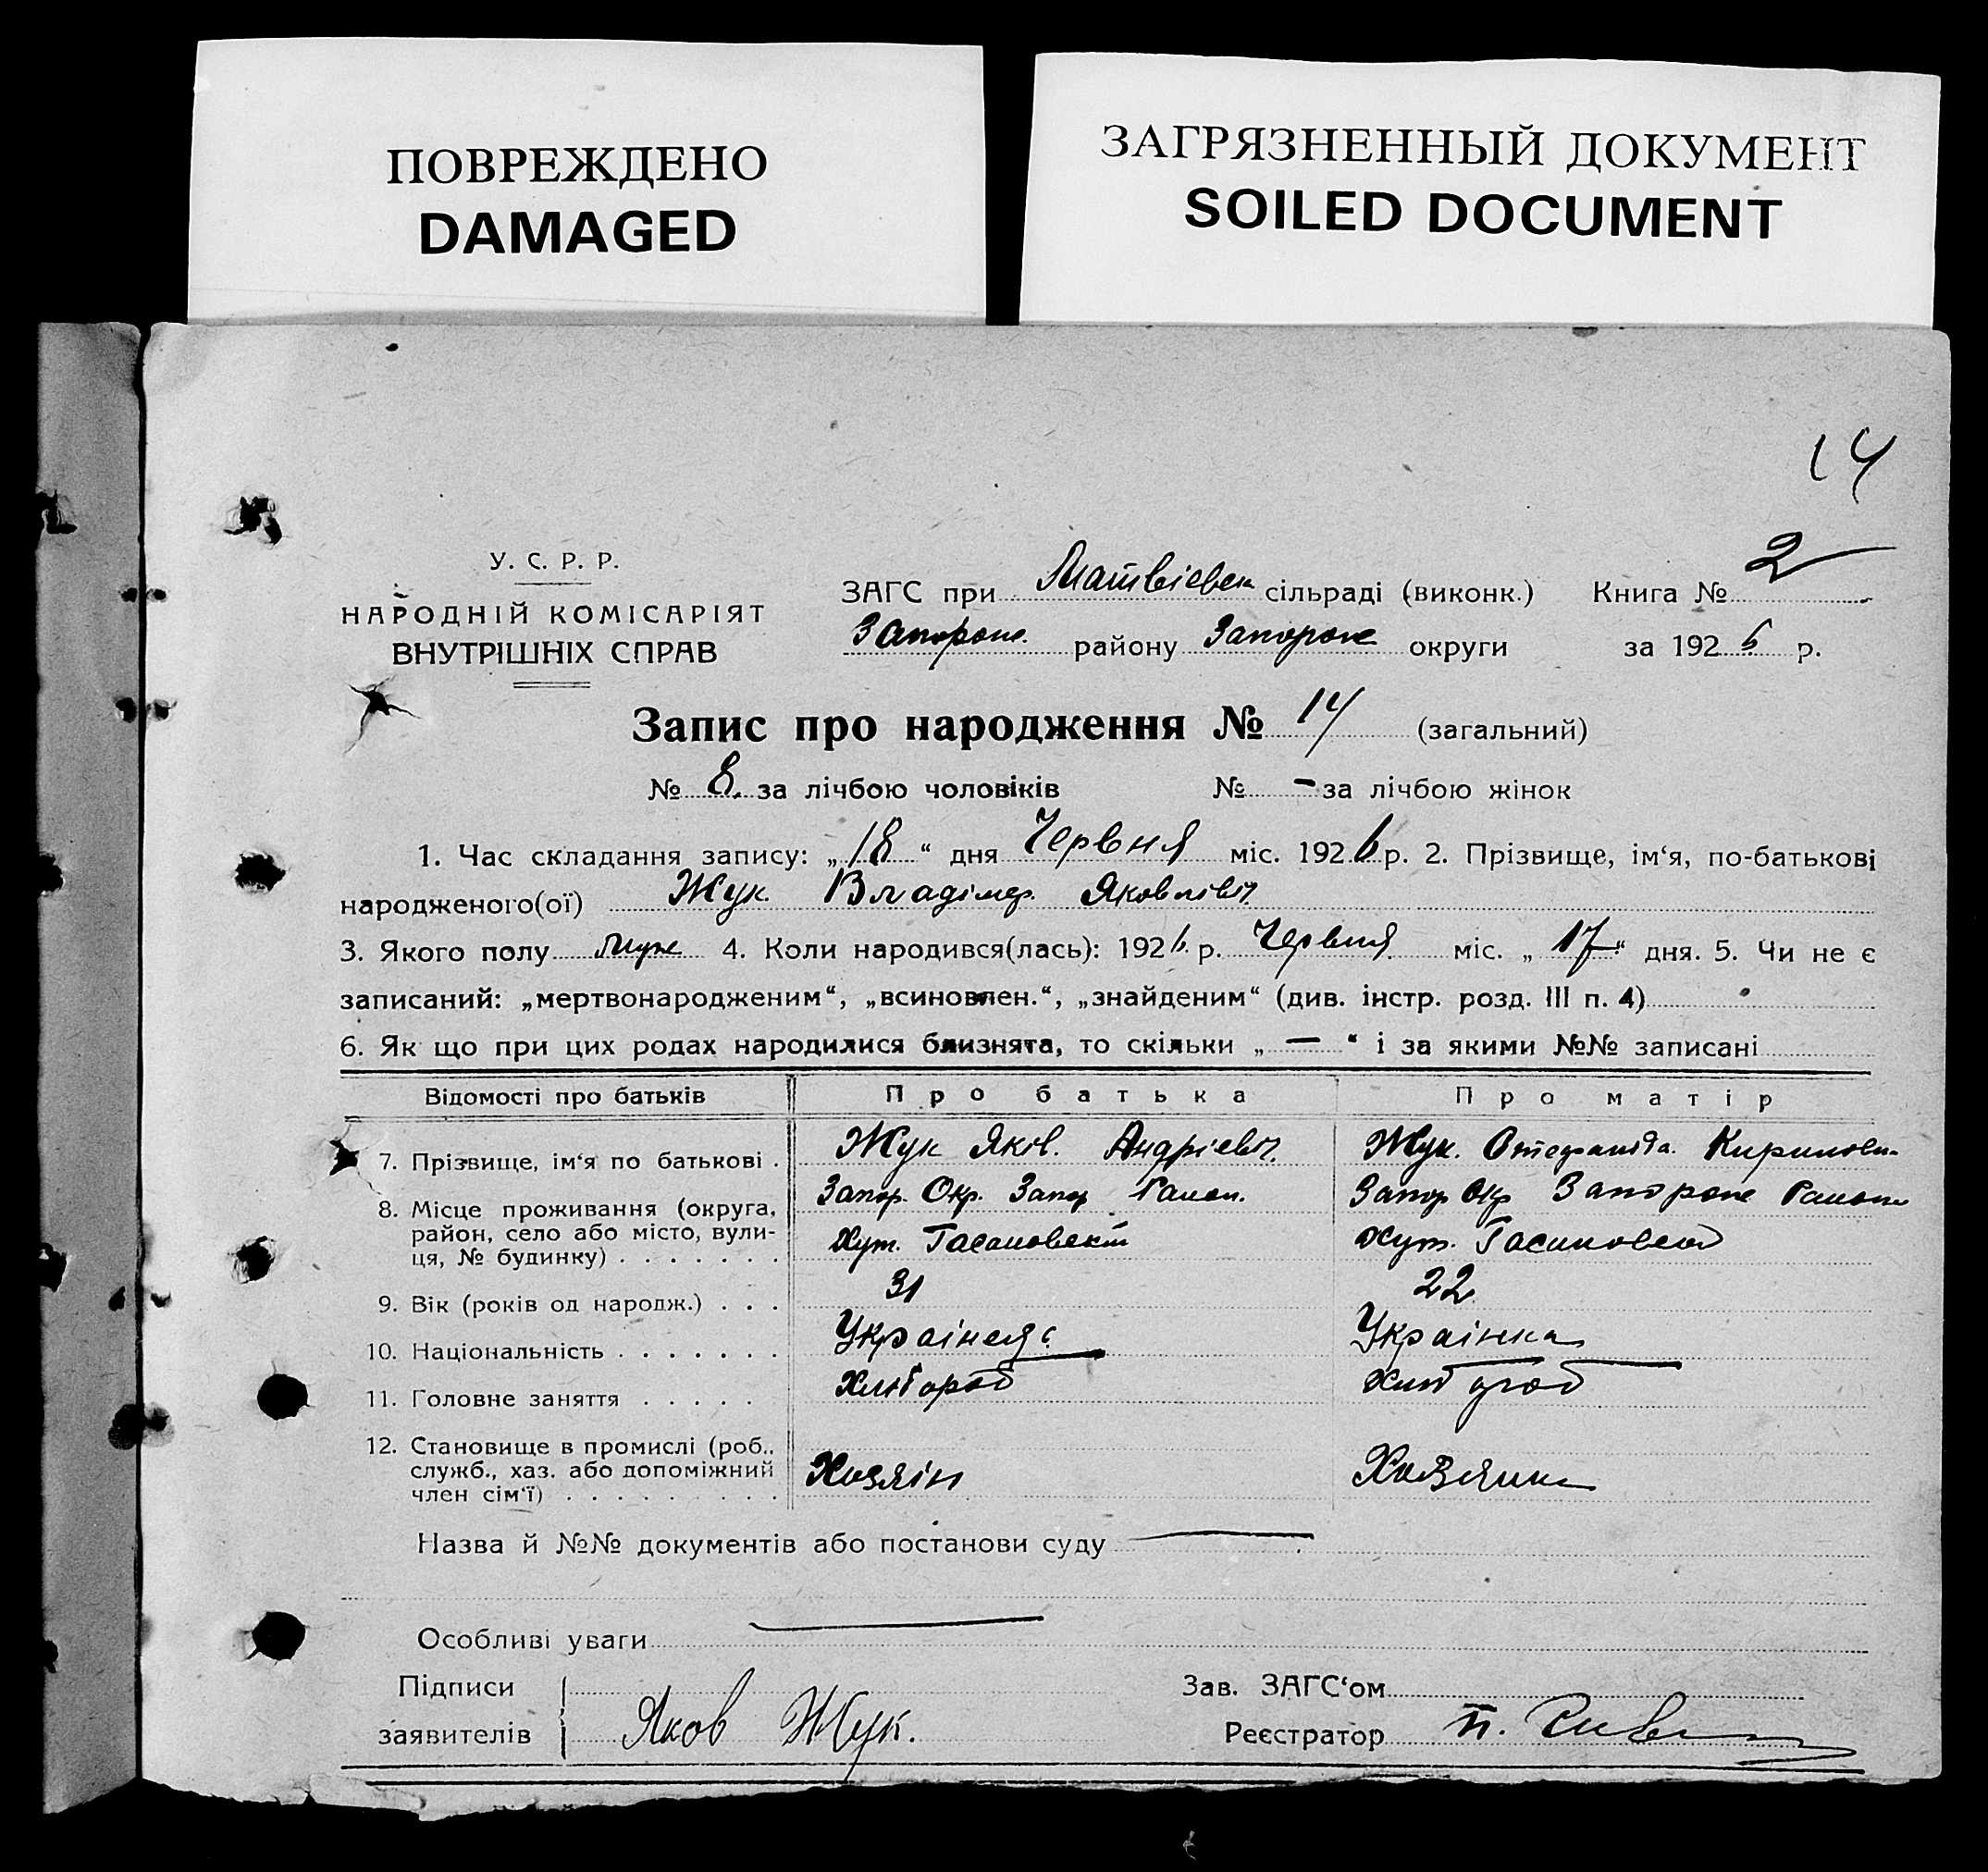 ПОВРЕЖДЕНО
DAMAGED
ЗАГРЯЗНЕННЫЙ ДОКУМЕНТ
SOILED DOCUMENT
14
У. С. Р. Р.
НАРОДНІЙ КОМІСАРІЯТ
ВНУТРІШНІХ СПРАВ
ЗАГС при Матвієвск сільраді (виконк.) Книга № 2
Запорож. району Запорож округи за 1926 р.
Запис про народження № 14 (загальний)
№ 8. за лічбою чоловіків № - за лічбою жінок
1. Час складання запису: „18“ дня Червня міс. 1926 р. 2. Прізвище, ім‘я, по-батькові
народженого(ої) Жук. Владімер. Яковлівіч.
3. Якого полу Муж 4. Коли народився(лась): 1926 р. Червня міс. „17“ дня. 5. Чи не є
записаний: „мертвонародженим“, „всиновлен.“, „знайденим“ (див. інстр. розд. III п. 4)
6. Як що при цих родах народилися близнята, то скільки „—“ і за якими №№ записані
Відомості про батьків Про батька Про матір
7. Прізвище, ім‘я по батькові . Жук Яків. Андрієвіч. Жук. Кирилови-
8. Місце проживання (округа, Запор. Окр. Запор Район. Запор Окр Запорож Район
район, село або місто, вули-
ця, № будинку) . . . . . . . Хут. Хут.
9. Вік (років од народж.) . . . 31 22.
10. Національність . . . . . . . Українец Українка
11. Головне заняття . . . . . Хлібороб Хліб ороб
12. Становище в промислі (роб.,
служб., хаз. або допоміжний Хозяін Хозяйка
член сім‘ї) . . . . . . . . .
Назва й №№ документів або постанови суду —
Особливі уваги —
Підписи Зав. ЗАГС‘ом
заявителів Яков Жук. Реєстратор П.